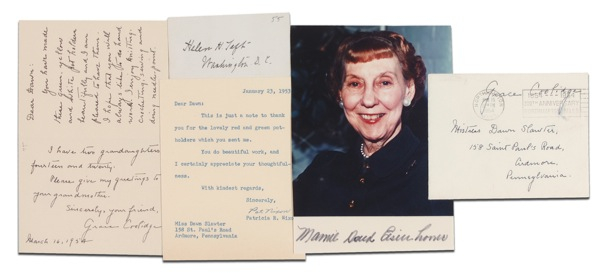 Dear Dawn:
You have made
these green yellow
and white pot holders
beautifully and I am
pleased to have them.
I hope that you will
always like to do hand
work. I enjoy knitting,
crocheting, sewing and
I have two grandaughters
fourteen and twenty.
Please give my greetings to
your grandmother.
Sincerely, your friend,
Grace Coolidge
March 16, 1954
Helen H. Taft
Washington D.C.
January 23, 1953
Dear Dawn:
This is just a note to thank
you for the lovely red and green pot-
holders which you sent me.
You do beautiful work, and
I certainly appreciate your thoughtful-
ness.
With kindest regards,
Sincerely,
Pat Nixon
Patricia R. Nixon
Miss Dawn Slawter
158 St. Paul's Road
Ardmore, Pennsylvania
Mamie Doud Eisenhower
Grace Coolidge
Mistress Dawn Slawter,
158 Saint Paul's Road,
Ardmore,
Pennsylvania.